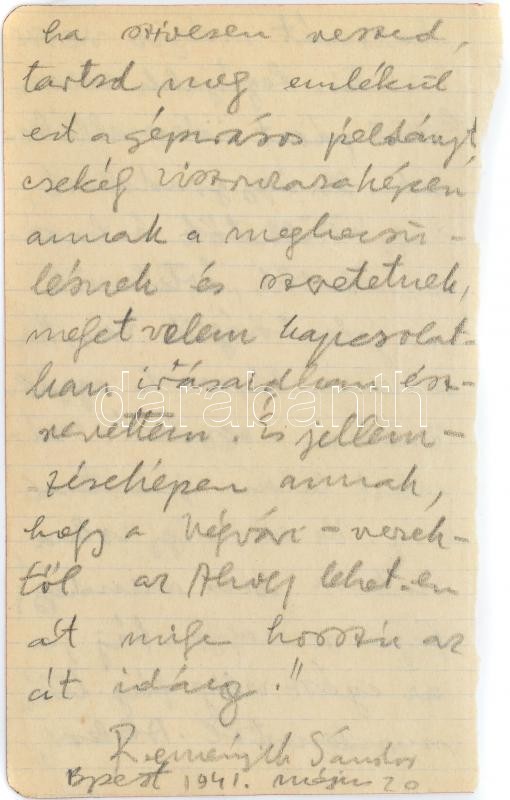 ha szivesen veszed,
tartsd meg emlékül
ezt a gépirásos példányt
csekély viszonzásaképen
annak a megbecsü-
lésnek és szeretetnek,
melyet velem kapcsolat-
ban irásaidban ész-
revettem. És jellem-
zéseképen annak,
hogy a Végvári-versek-
től az Ahogy lehet-en
át milyen hosszú az
út idáig."
Reményik Sándor
Bpest 1941. május 20
darabanth